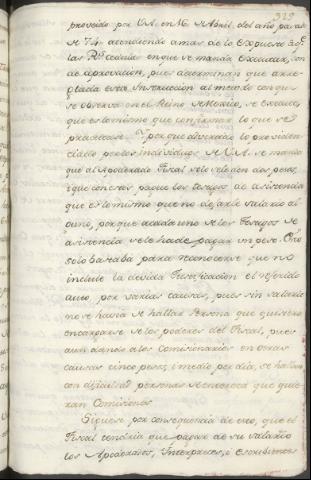 323
proveido por V.A. en 16 de Abril del año pasado
de 74 atendiendo amas de lo Expuesto a q.e
las R.s cedulas en que se manda executar, son
de aprovacion, pues determinan que arre-
glada esta Instruccion al metodo con que
se observa en el Reino de Mexico, se execute,
que es lo mismo que confirmar lo que se
practicase. Y por que alterando lo providen-
ciado por los individuos de V.A. se manda
que al Apoderado Fiscal se le den dos pesos,
i que con estos pague los testigos de asistencia
que es lo mismo que no dejarle salario al-
guno, por que a cada uno de los Testigos de
asistencia se le ha de pagar un peso. Esto
solo bastaba para reconocerse que no
incluie la devida Justificacion el referido
auto, por varias causas, pues sin salario
no se havia de hallar Persona que quisiere
encargarse de los poderes del Fiscal, pues
aun dando a los Comisionarios en otras
causas cinco pesos, i medio por dia, se hallan
con dificultad personas que quie-
ran Comisiones
Siguese por consequencia de esto, que el
Fiscal tendria que pagar de su salario
los Apoderados, Interpretes, i Escribientes